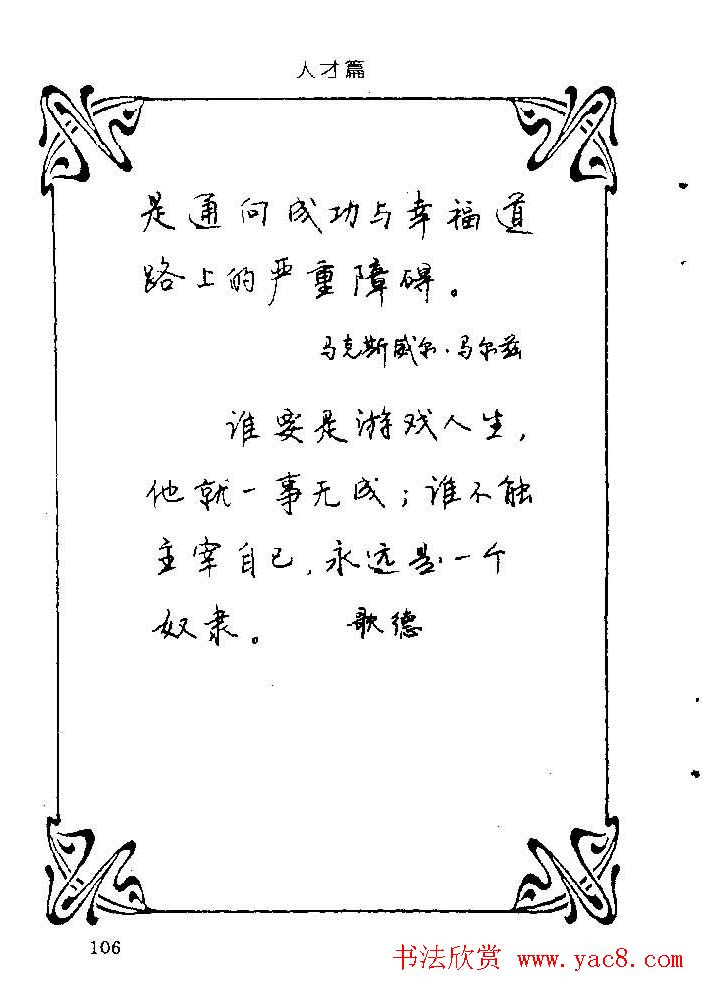 人才篇
是通向成功与幸福道
路上的严重障碍。
马克斯威尔·马尔兹
谁要是游戏人生，
他就一事无成；谁不能
主宰自己，永远是一个
奴隶。 歌德
106
书法欣赏 www.yac8.com